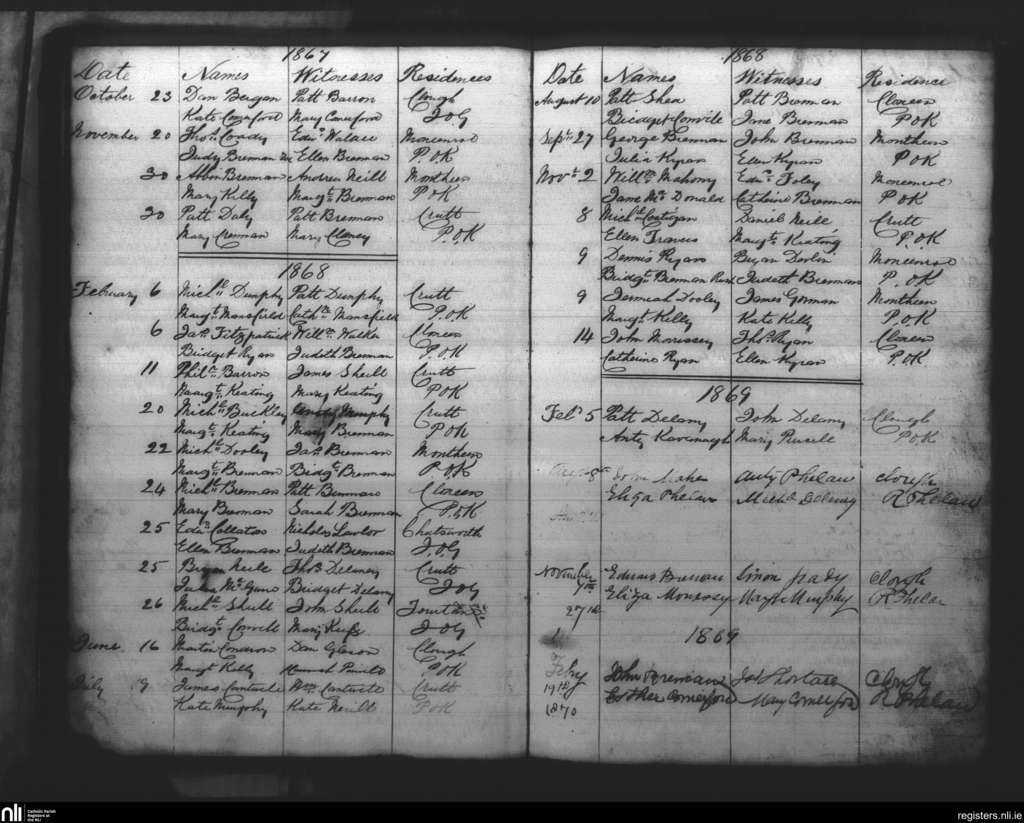 1867
Date Names Witnesses Residences
October 23 Dan Bergan Patt Barron Clough
Kate Comerford Mary Comerford J O G
November 20 Thos. Coady Edwd. Wallace Moneenroe
Judy Brennan Ellen Brennan P.O.K
30 Brennan Andrew Neill Montheen
Mary Kelly Margt. Brennan P O K
30 Patt Daly Patt Brennan Crutt
Mary Brennan Mary Clancy P.O.K
1868
February 6 Michl. Dunphy Patt Dunphy Crutt
Margt. Mansfield Cathne. Mansfield P.O.K
6 Jas. Fitzpatrick Willm. Walker Cloneen
Bridget Ryan Judith Brennan P.O.K
11 Phil. Barron James Sheill Crutt
Margt. Keating Mary Keating P O K
20 Michl. Buckley Murphy Crutt
Margt. Keating Mary Brennan P O K
22 Michl. Dooley Jas. Brennan Montheen
Margt. Brennan Bridgt. Brennan P.O.K
24 Michl. Brennan Patt Brennan Cloneen
Mary Brennan Sarah Brennan P.O.K
25 Edwd. Nicholas Lawlor Chatsworth
Ellen Brennan Judith Brennan J.O.G
25 Bryan Neill Thos. Delaney Crutt
Julia Bridget Delany J O G
26 Michl. Sheill John Sheill
Bridgt. Conville Mary Keeffe J O G
June 16 Martin Comeron Dan Gleeson Clough
Margt. Kelly Hannah P.O.K
July 9 James Cantwell Wm. Cantwell Crutt
Kate Murphy Kate Neill P O K
1868
Date Names Witnesses Residence
August 10 Patt Shea Patt Brennan Cloneen
Bridget Conville Jane Brennan P O K
Septr. 27 George Brennan John Brennan Montheen
Julia Kyran Ellen Kyran P O K
Novr. 2 Willm. Mahony Edwd. Foley Moneenroe
Jane McDonald Catherine Brennan P O K
8 Michl. Costigan Daniel Neill Crutt
Ellen Travers Margt. Keating P.O.K
9 Dennis Ryan Bryan Devlin Moneenroe
Bridgt. Brennan Judith Brennan P.O.K
9 Jeremiah Dooley James Gorman Montheen
Margt. Kelly Kate Kelly P.O.K
14 John Morrissey Thos. Ryan Cloneen
Catherine Ryan Ellen Kyran P.O.K
1869
Feb. 5 Patt Delany John Delany Clough
Anty Kavanagh Mary Russell P O K
8th John Maher Anty Phelan Clough
Eliza Phelan Michl Delany R Phelan
November Edward Brennan Simon Grady Clough
9th Eliza Morrissy Margt Murphy R Phelan
27th
1869
Feby John Brennan Clough
1918 Esther Comerford Mary Comerford R Phelan
1870
nli
Catholic Parish
Registers at
the NLI
registers.nli.ie